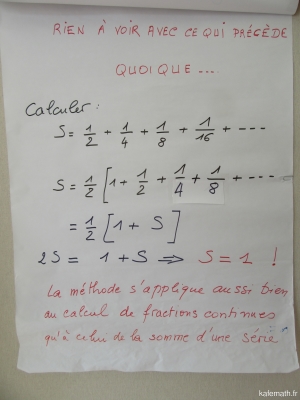 RIEN À VOIR AVEC CE QUI PRÉCÈDE
QUOIQUE...
Calculer :
S = 1/2 + 1/4 + 1/8 + 1/16 + ---
S = 1/2 [1 + 1/2 + 1/4 + 1/8 + ---
= 1/2 [1 + S]
2S = 1 + S ⇒ S = 1 !
La méthode s'applique aussi bien
au calcul de fractions continues
qu'à celui de la somme d'une série
kafemath.fr